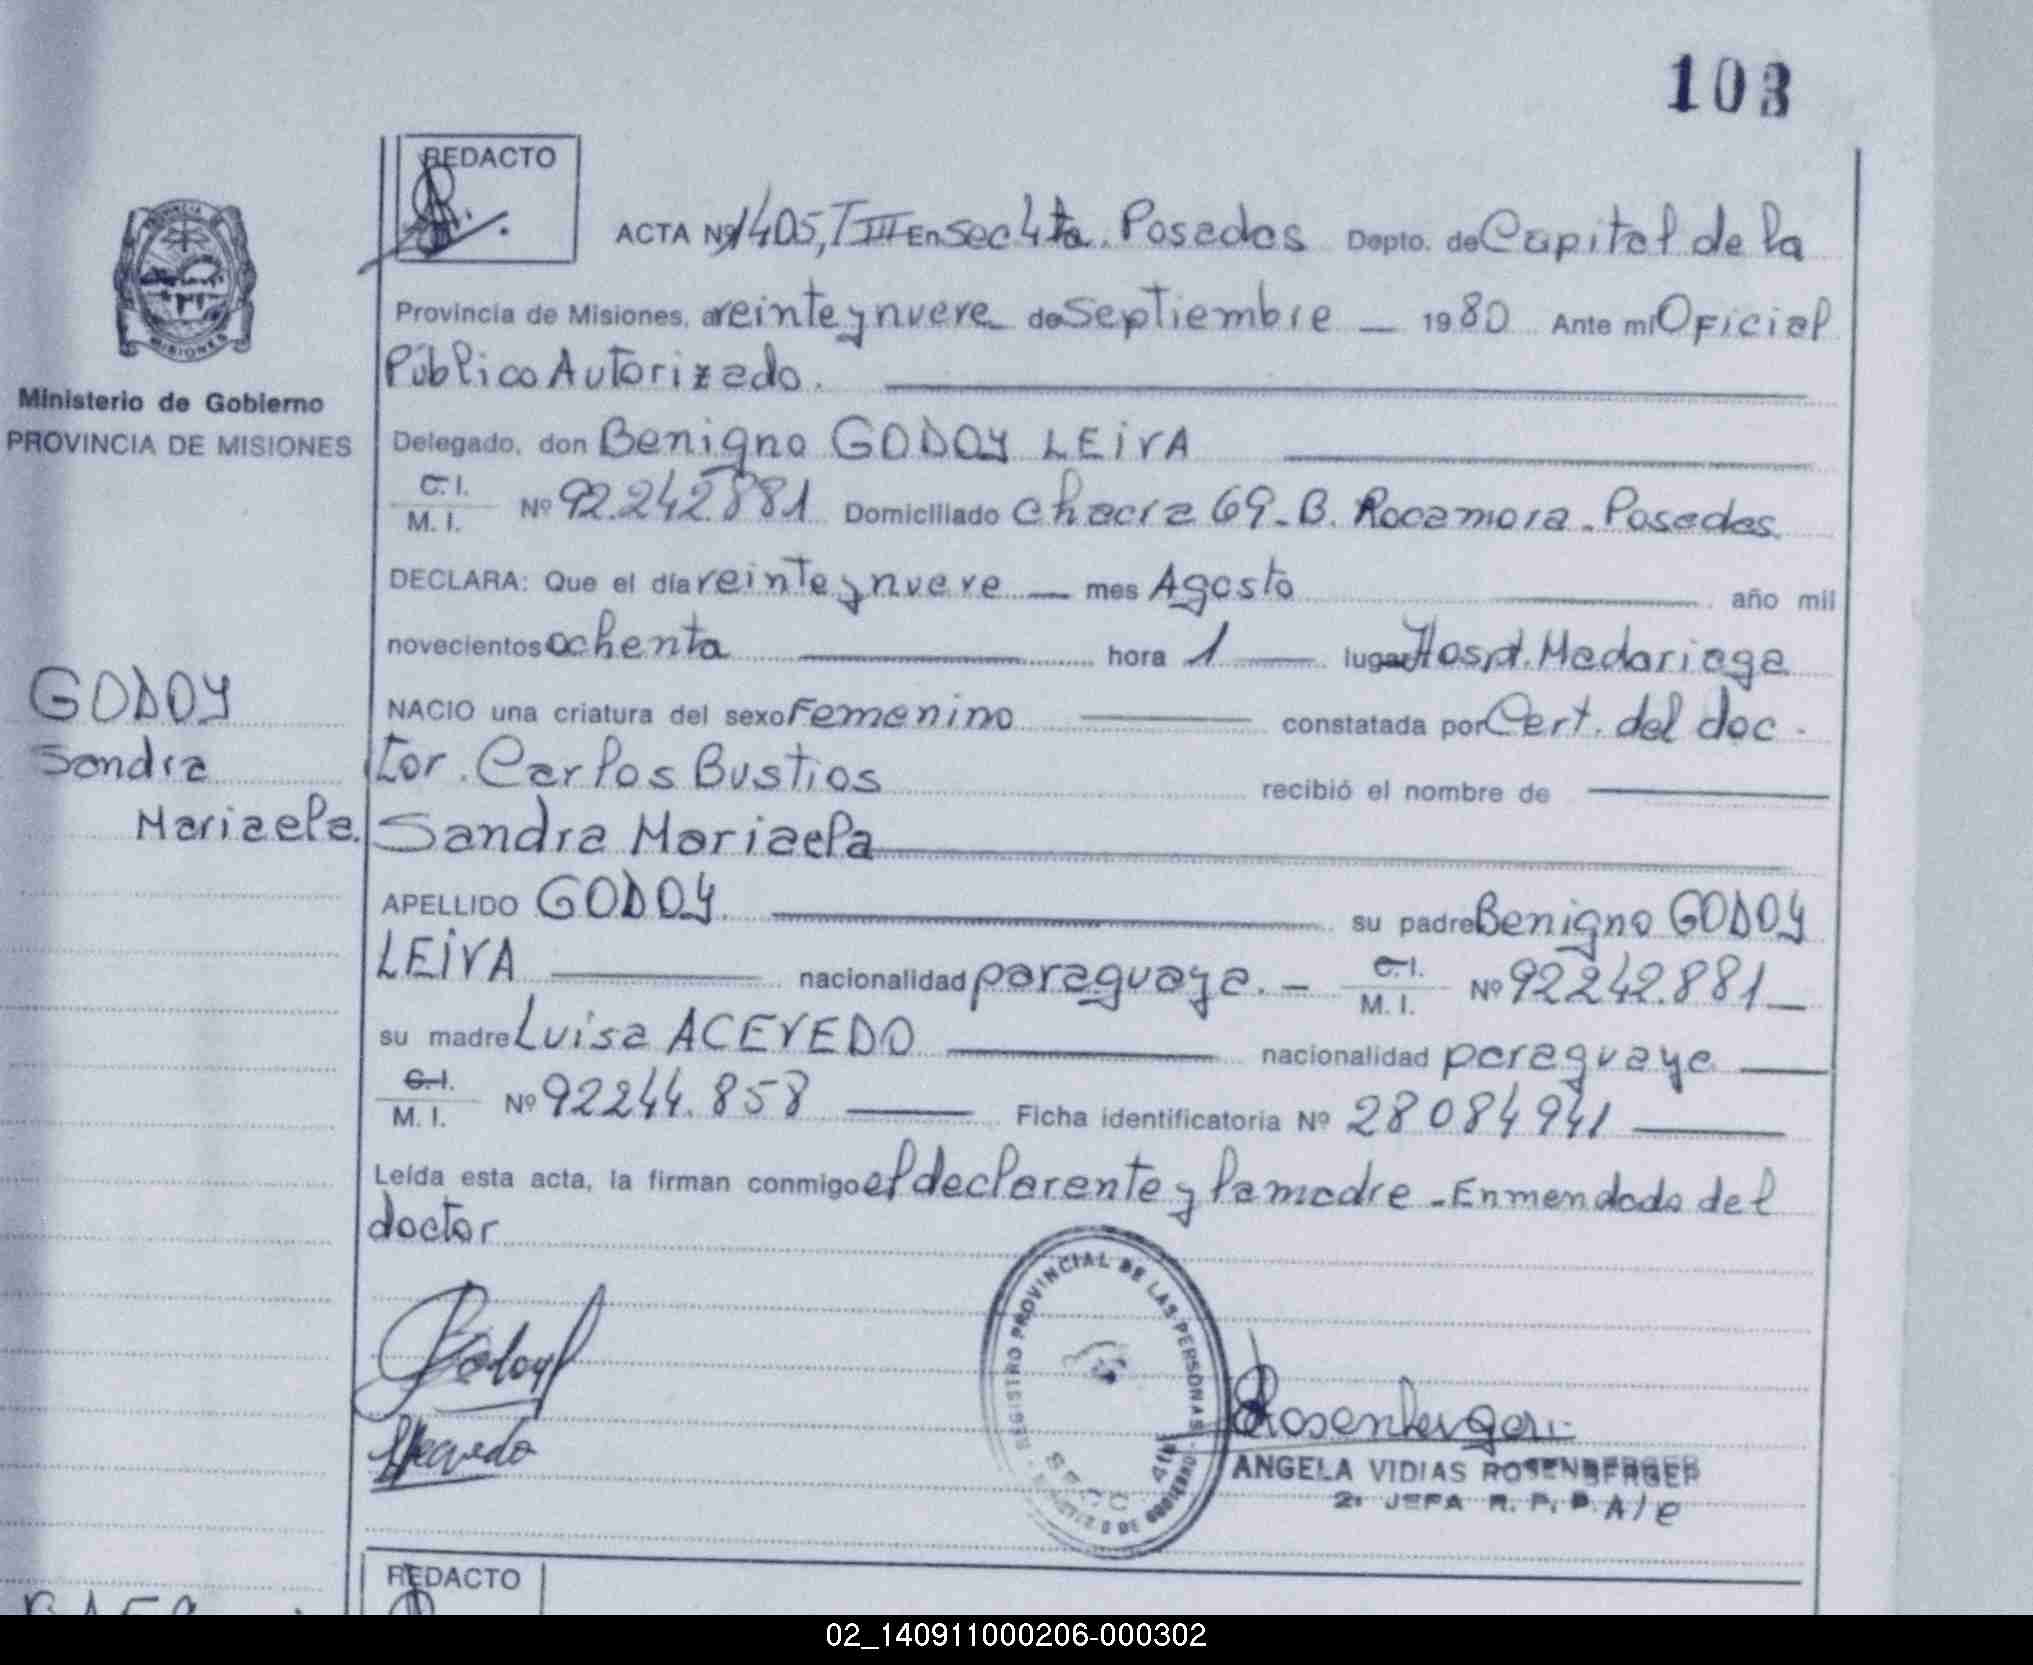 103
REDACTO
ACTA Nº 1405, T III En Sec 4ta. Posadas Depto. de Capital de la
Provincia de Misiones, a veinte y nueve de Septiembre — 1980 Ante mí Oficial
Público Autorizado.
PROVINCIA DE MISIONES
Ministerio de Gobierno
PROVINCIA DE MISIONES
Delegado, don Benigno GODOY LEIVA
C. I.
M. I. Nº 92.242.881 Domiciliado chacra 69 - B. Rocamora - Posadas
DECLARA: Que el día veinte y nueve — mes Agosto año mil
novecientos ochenta hora 1 lugar Hospt. Madariaga
NACIO una criatura del sexo Femenino constatada por Cert. del doc -
tor. Carlos Bustios recibió el nombre de
Sandra Mariaela
GODOY
Sandra
Mariaela.
APELLIDO GODOY su padre Benigno GODOY
LEIVA nacionalidad paraguaya. - C. I.
M. I. Nº 92242.881
su madre Luisa ACEVEDO nacionalidad paraguaya
C. I.
M. I. Nº 92244.858 Ficha identificatoria Nº 28084941
Leída esta acta, la firman conmigo el declarante y la madre - Enmendado del
doctor
Godoy
Acevedo
REGISTRO PROVINCIAL DE LAS PERSONAS
SECC. 4ta
DE GOBIERNO
Rosenberger
ANGELA VIDIAS ROSENBERGER
2: JEFA R. P. P. A/C
REDACTO
02_140911000206-000302